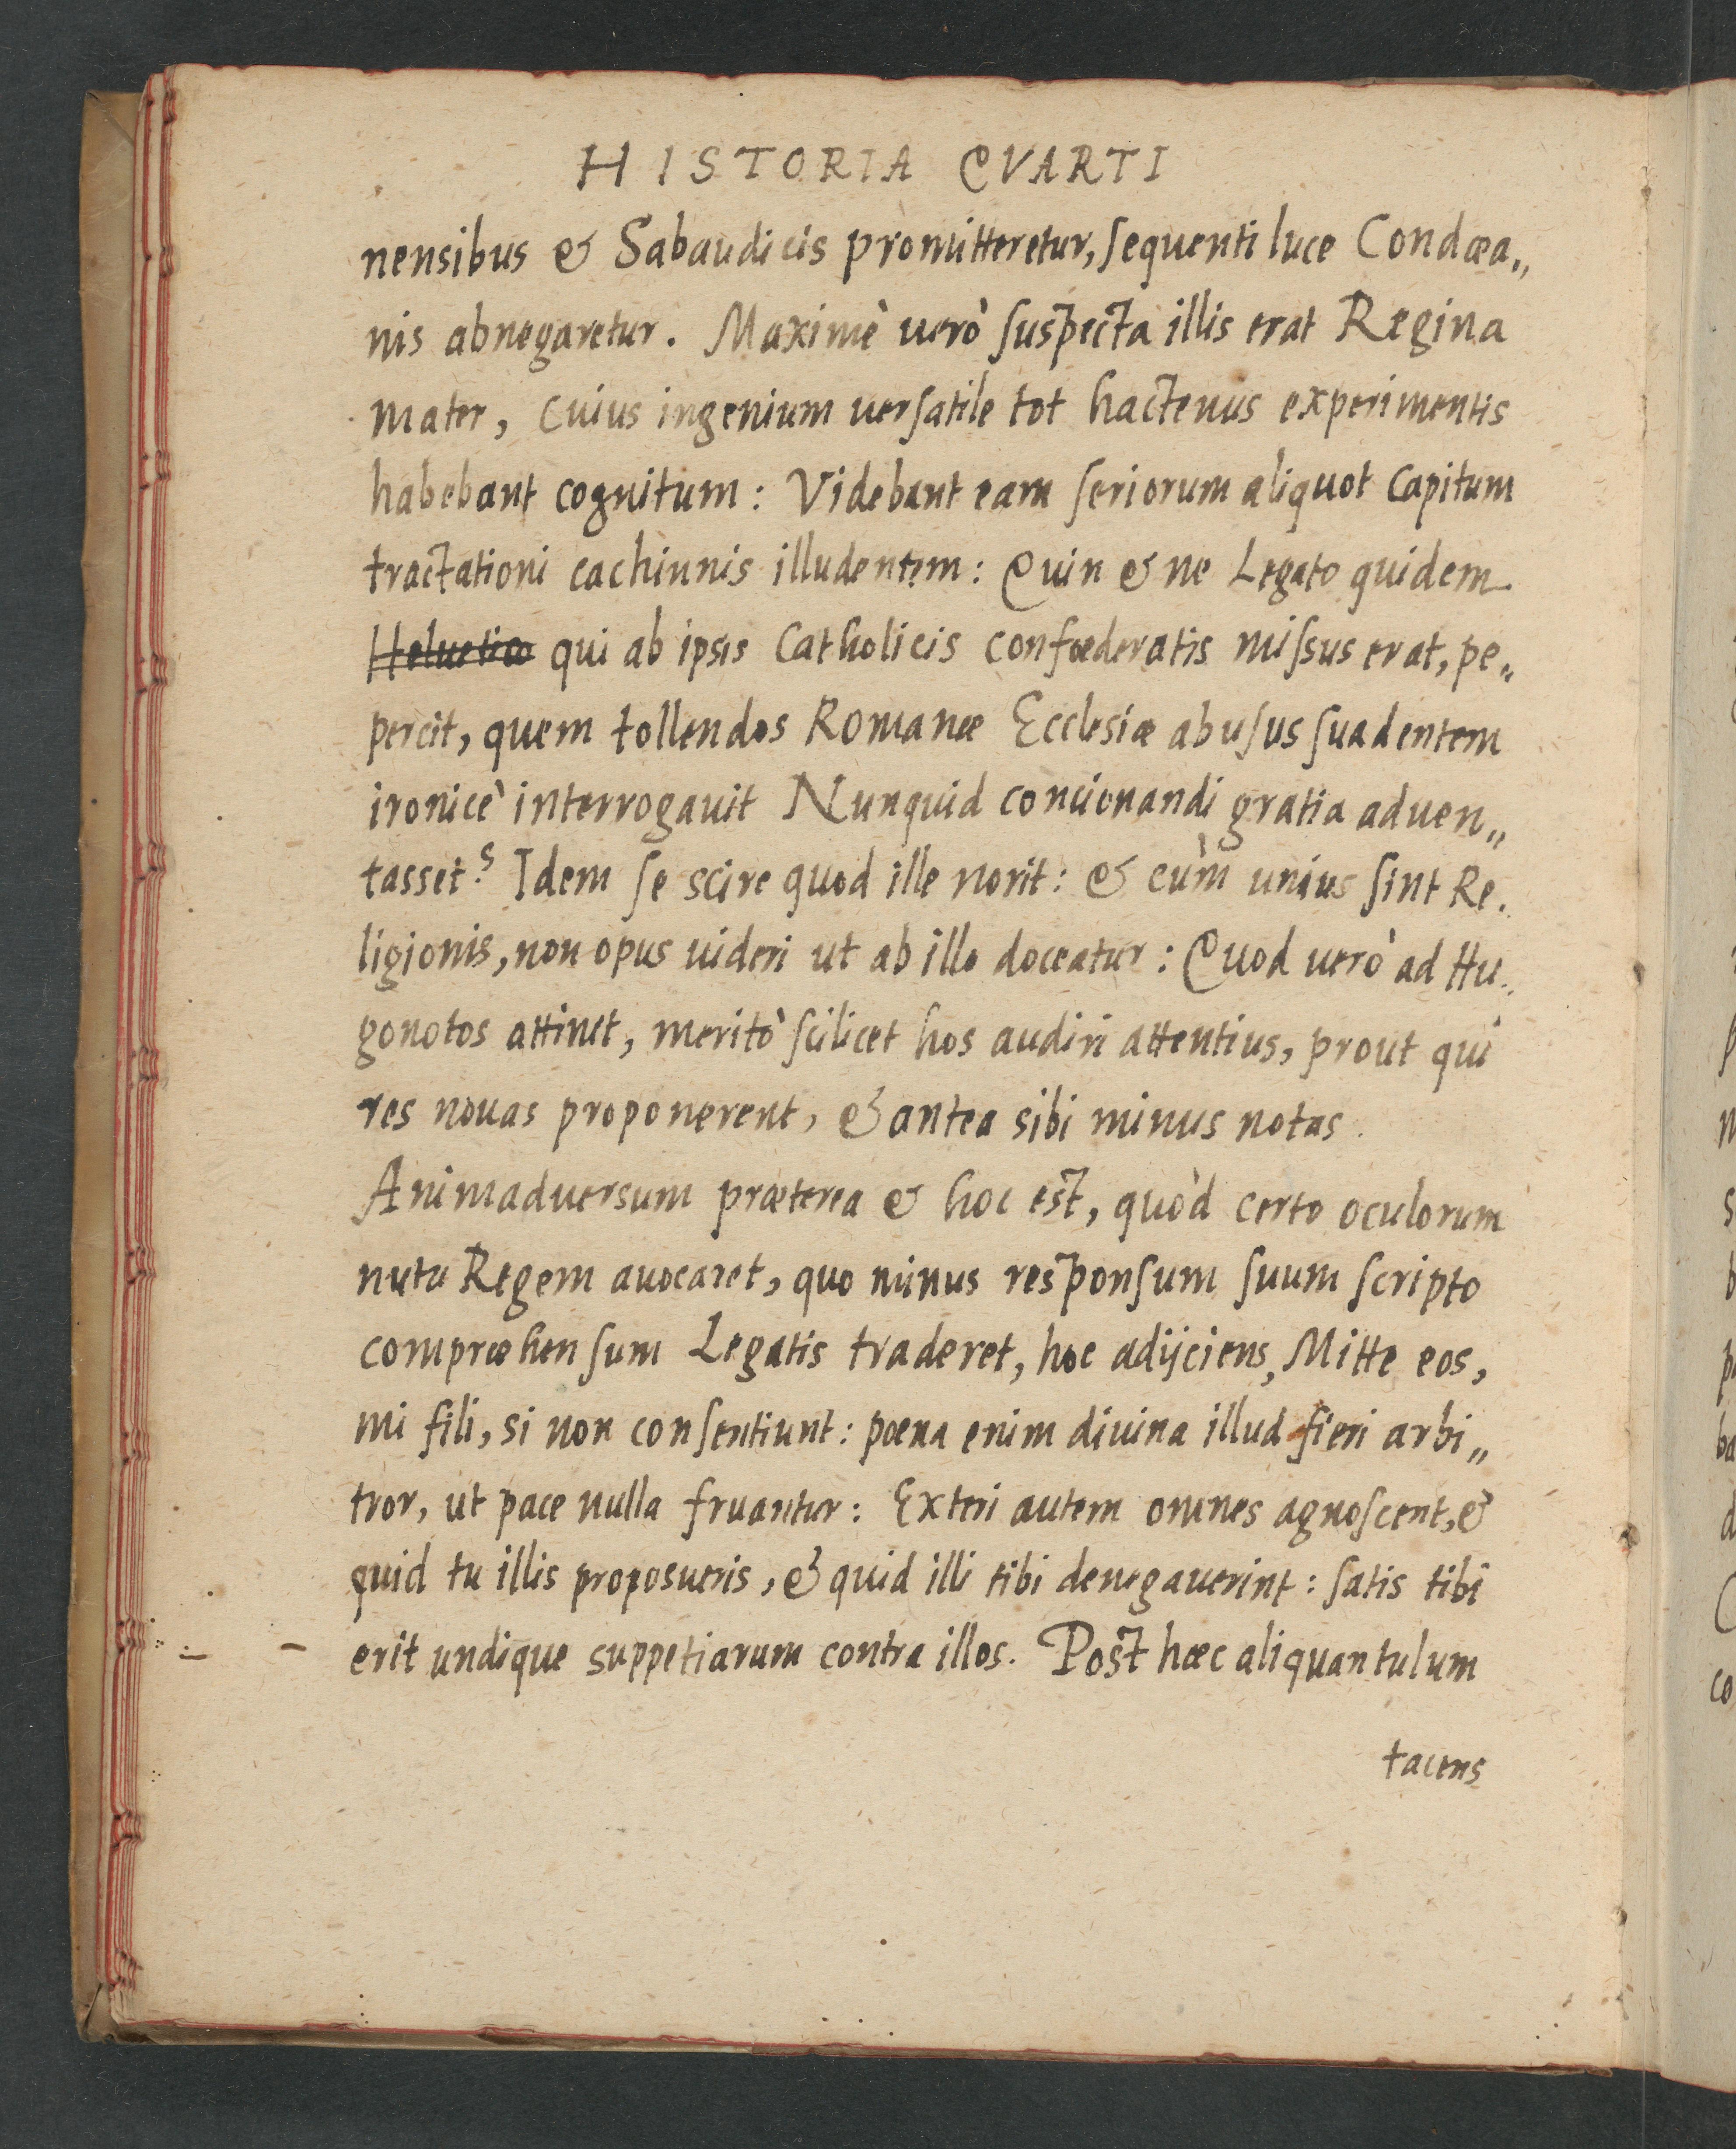 HISTORIA QVARTI
nensibus & Sabaudicis promitteretur, sequenti luce Condæa„
nis abnegaretur. Maximè uerò suspecta illis erat Regina
mater, cuius ingenium uersatile tot hactenus experimentis
habebant cognitum: Videbant eam seriorum aliquot capitum
tractationi cachinnis illudentem: Quin & ne Legato quidem
Heluetico qui ab ipsis Catholicis confœderatis missus erat, pe„
percit, quem tollendos Romanæ Ecclesiæ abusus suadentem
ironicè interrogauit Nunquid concionandi gratia aduen„
tasset? Idem se scire quod ille norit: & cùm unius sint Re„
ligionis, non opus uideri ut ab illo doceatur: Quod uerò ad Hu„
gonotos attinet, meritò scilicet hos audiri attentius, prout qui
res nouas proponerent, & antea sibi minus notas.
Animaduersum præterea & hoc est, quòd certo oculorum
nutu Regem auocaret, quo minus responsum suum scripto
compræhensum Legatis traderet, hoc adijciens, Mitte eos,
mi fili, si non consentiunt: pœna enim diuina illud fieri arbi„
tror, ut pace nulla fruantur: Exteri autem omnes agnoscent, &
quid tu illis proposueris, & quid illi tibi denegauerint: satis tibi
erit undique suppetiarum contra illos. Post hæc aliquantulum
tacens